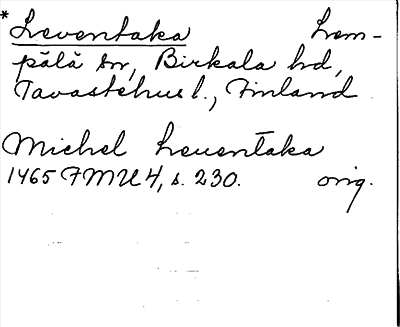 *Leventaka Lem-
pälä sn, Birkala hd,
Tavastehus l., Finland
Michel Leuentaka
1465 FMU 4, s. 230. orig.